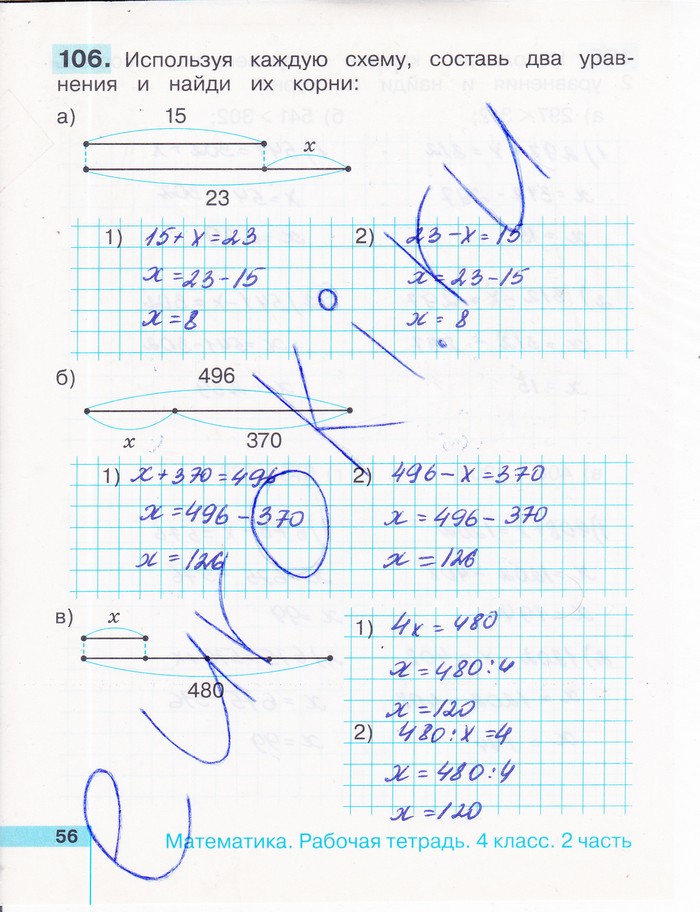 106. Используя каждую схему, составь два урав-
нения и найди их корни:
а)
15
x
23
1) 15 + x = 23
x = 23 - 15
x = 8
2) 23 - x = 15
x = 23 - 15
x = 8
б)
496
x 370
1) x + 370 = 496
x = 496 - 370
x = 126
2) 496 - x = 370
x = 496 - 370
x = 126
в)
x
480
1) 4x = 480
x = 480 : 4
x = 120
2) 480 : x = 4
x = 480 : 4
x = 120
56 Математика. Рабочая тетрадь. 4 класс. 2 часть